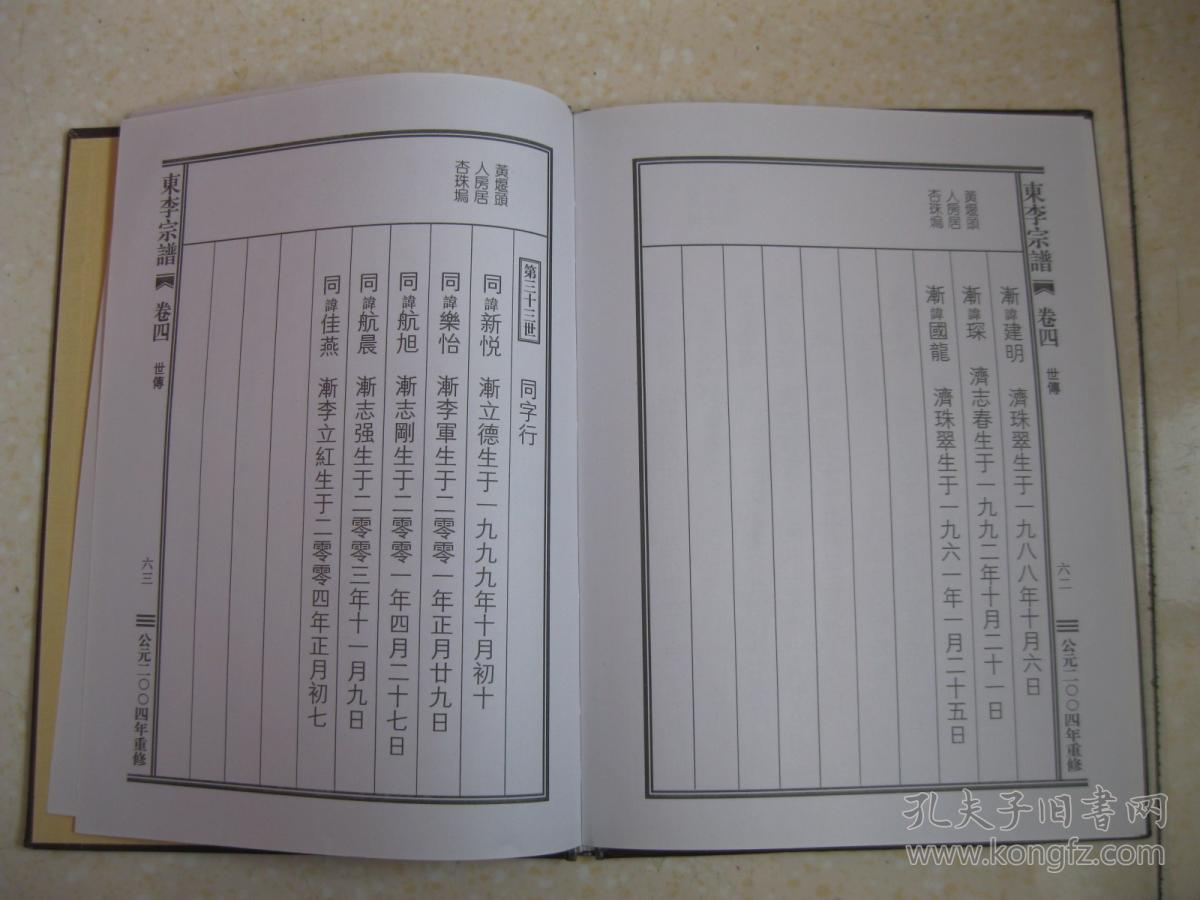 東李宗譜
卷四
世傳
六二
公元二〇〇四年重修
黃堰頭
人房居
杏珠塢
漸諱建明 濟珠翠生于一九八八年十月六日
漸諱琛 濟志春生于一九九二年十月二十一日
漸諱國龍 濟珠翠生于一九六一年一月二十五日
黃堰頭
人房居
杏珠塢
第三十三世 同字行
同諱新悦 漸立德生于一九九九年十月初十
同諱樂怡 漸李軍生于二零零一年正月廿九日
同諱航旭 漸志剛生于二零零一年四月二十七日
同諱航晨 漸志强生于二零零三年十一月九日
同諱佳燕 漸李立紅生于二零零四年正月初七
東李宗譜
卷四
世傳
六三
公元二〇〇四年重修
孔夫子旧书网
www.kongfz.com